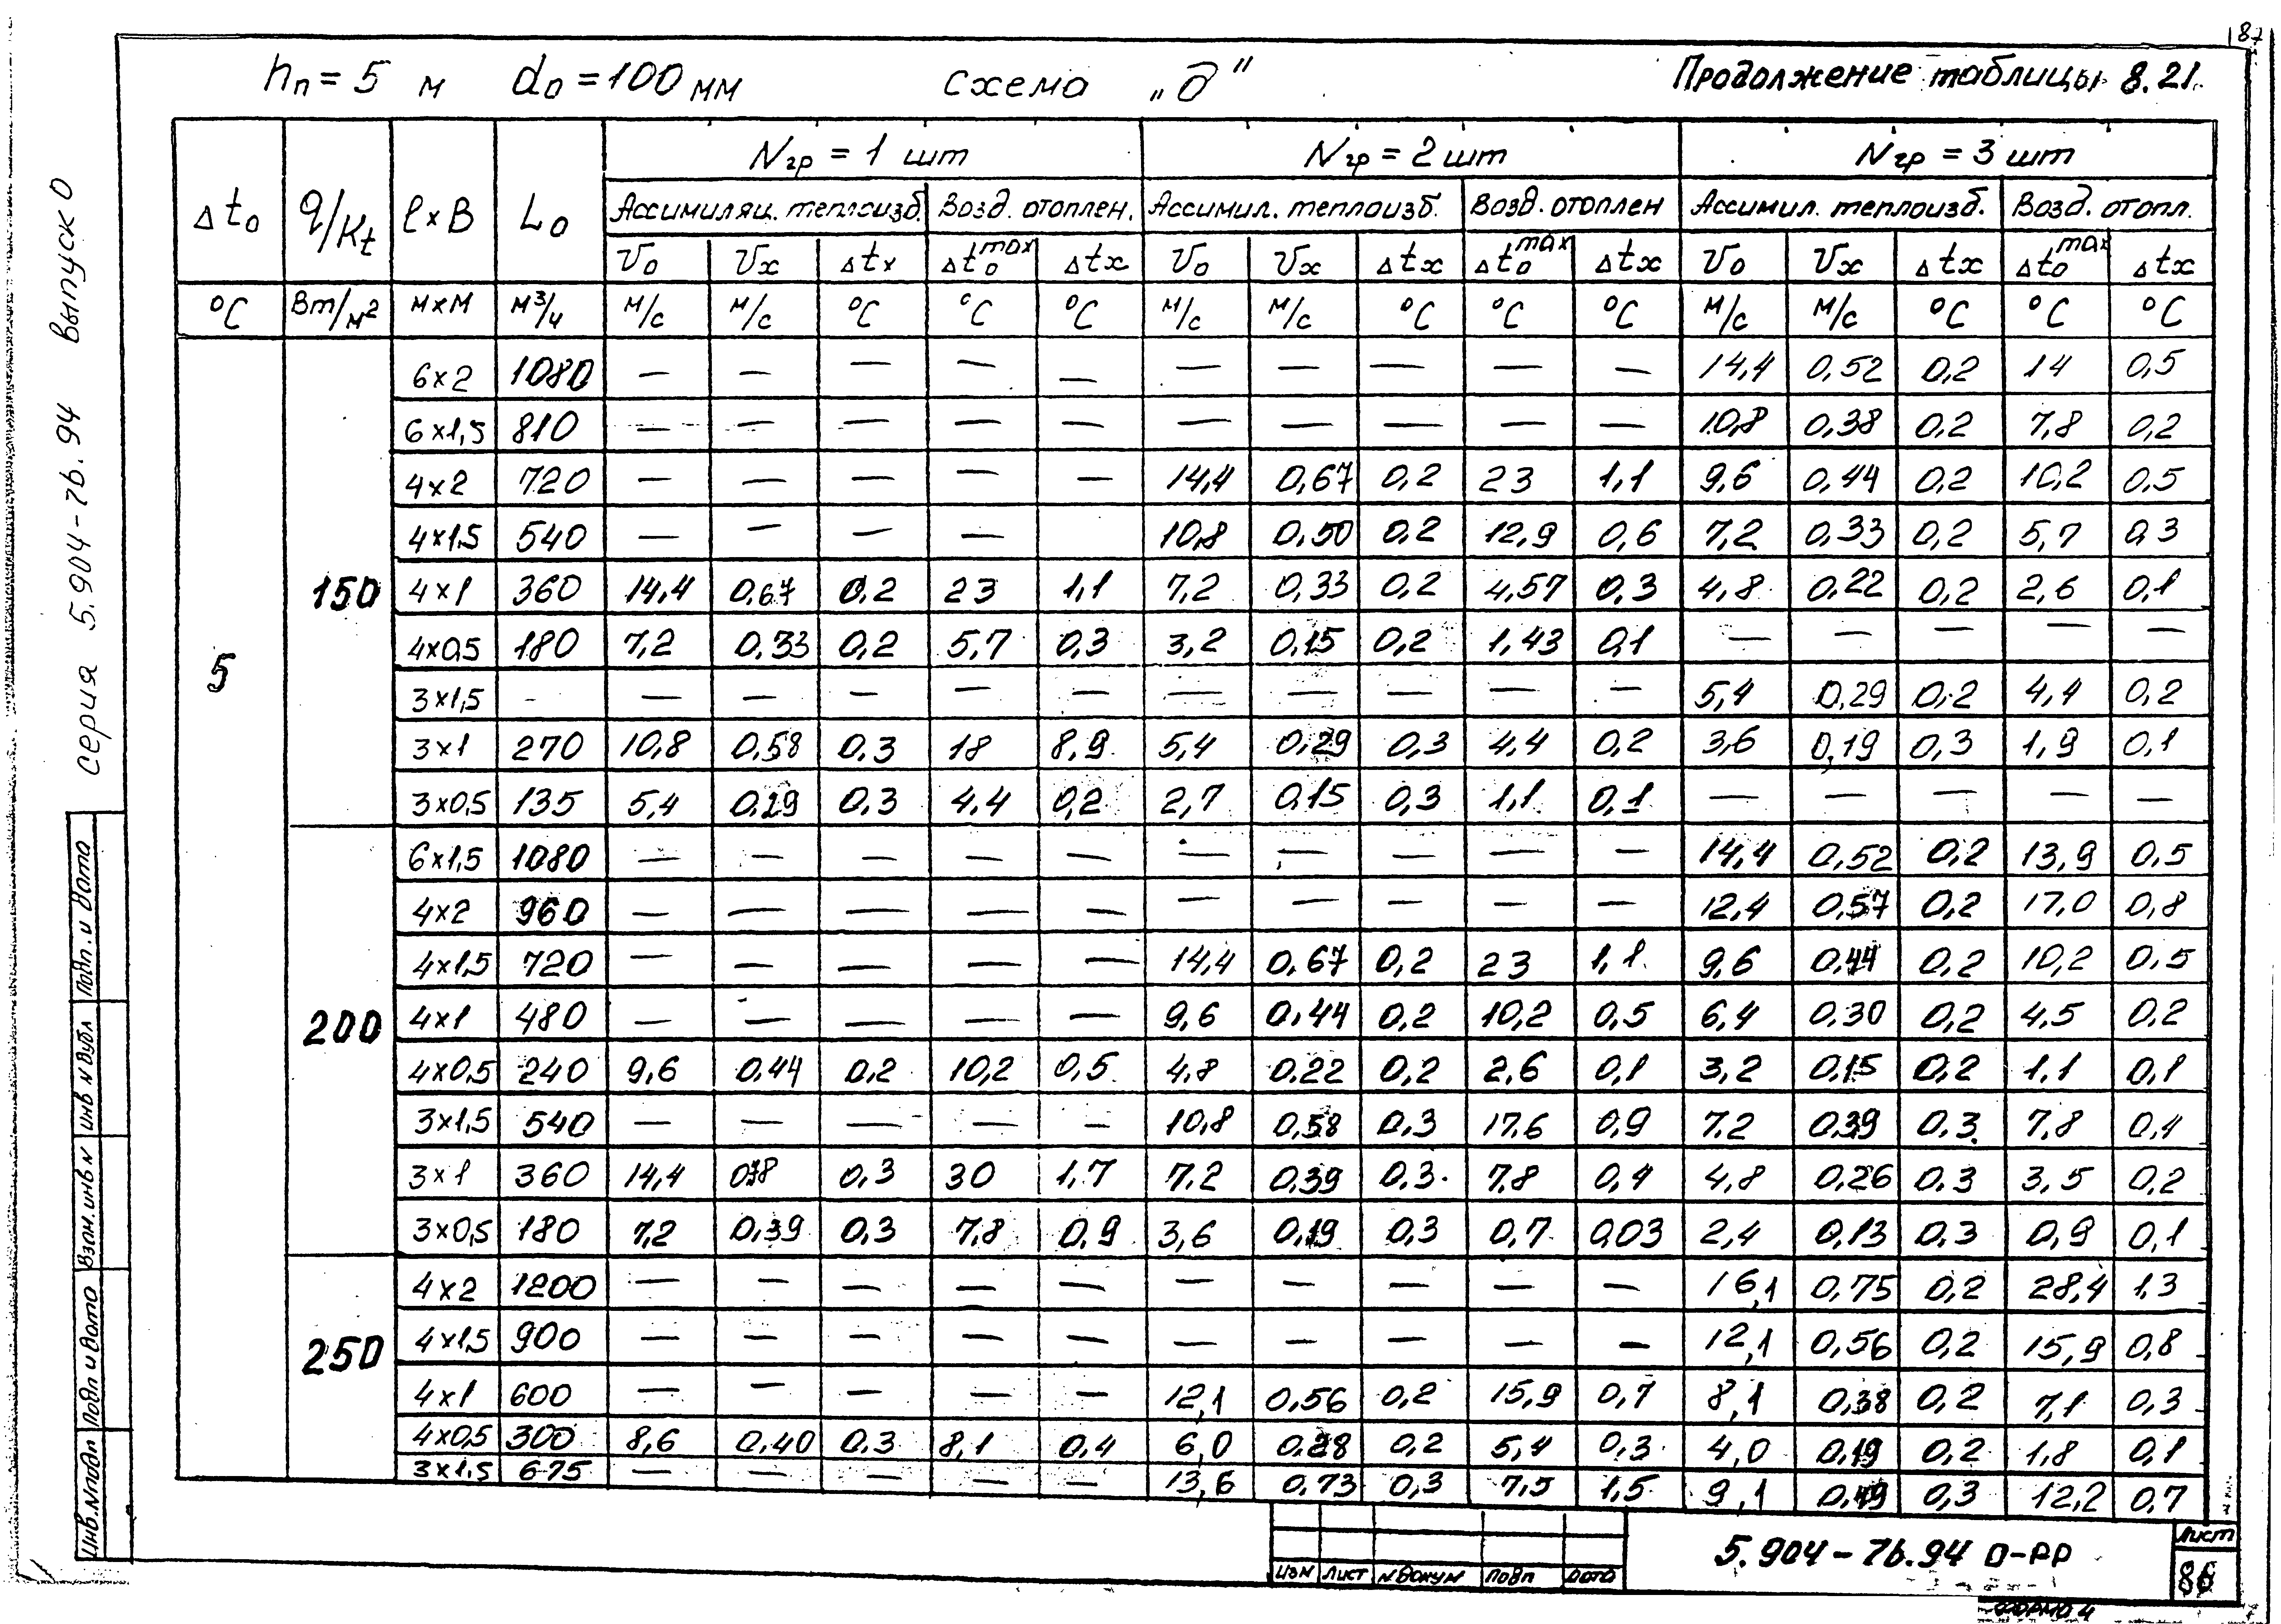 87
hп = 5 м d₀ = 100 мм схема „д" Продолжение таблицы 8.21.
Δt₀ q/Kt ℓ×B L₀ Nгр = 1 шт Nгр = 2 шт Nгр = 3 шт
Ассимиляц. теплоизб. Возд. отоплен. Ассимил. теплоизб. Возд. отоплен Ассимил. теплоизб. Возд. отопл.
V₀ Vx Δtx Δt₀max Δtx V₀ Vx Δtx Δt₀max Δtx V₀ Vx Δtx Δt₀max Δtx
°C Вт/м² м×м м³/ч м/с м/с °C °C °C м/с м/с °C °C °C м/с м/с °C °C °C
5
150
6×2 1080 — — — — — — — — — — 14,4 0,52 0,2 14 0,5
6×1,5 810 — — — — — — — — — — 10,8 0,38 0,2 7,8 0,2
4×2 720 — — — — — 14,4 0,67 0,2 23 1,1 9,6 0,44 0,2 10,2 0,5
4×1,5 540 — — — — 10,8 0,50 0,2 12,9 0,6 7,2 0,33 0,2 5,7 0,3
4×1 360 14,4 0,67 0,2 23 1,1 7,2 0,33 0,2 4,57 0,3 4,8 0,22 0,2 2,6 0,1
4×0,5 180 7,2 0,33 0,2 5,7 0,3 3,2 0,15 0,2 1,43 0,1 — — — — —
3×1,5 - — — — — — — — — — — 5,4 0,29 0,2 4,4 0,2
3×1 270 10,8 0,58 0,3 18 8,9 5,4 0,29 0,3 4,4 0,2 3,6 0,19 0,3 1,9 0,1
3×0,5 135 5,4 0,29 0,3 4,4 0,2 2,7 0,15 0,3 1,1 0,1 — — — — —
200
6×1,5 1080 — — — — — — — — — — 14,4 0,52 0,2 13,9 0,5
4×2 960 — — — — — — — — — — 12,4 0,57 0,2 17,0 0,8
4×1,5 720 — — — — — 14,4 0,67 0,2 23 1,1 9,6 0,44 0,2 10,2 0,5
4×1 480 — — — — — 9,6 0,44 0,2 10,2 0,5 6,4 0,30 0,2 4,5 0,2
4×0,5 240 9,6 0,44 0,2 10,2 0,5 4,8 0,22 0,2 2,6 0,1 3,2 0,15 0,2 1,1 0,1
3×1,5 540 — — — — — 10,8 0,58 0,3 17,6 0,9 7,2 0,39 0,3 7,8 0,4
3×1 360 14,4 0,78 0,3 30 1,7 7,2 0,39 0,3 7,8 0,4 4,8 0,26 0,3 3,5 0,2
3×0,5 180 7,2 0,39 0,3 7,8 0,9 3,6 0,19 0,3 0,7 0,03 2,4 0,13 0,3 0,9 0,1
250
4×2 1200 — — — — — — — — — — 16,1 0,75 0,2 28,4 1,3
4×1,5 900 — — — — — — — — — — 12,1 0,56 0,2 15,9 0,8
4×1 600 — — — — — 12,1 0,56 0,2 15,9 0,7 8,1 0,38 0,2 7,1 0,3
4×0,5 300 8,6 0,40 0,3 8,1 0,4 6,0 0,28 0,2 5,4 0,3 4,0 0,19 0,2 1,8 0,1
3×1,5 675 — — — — — 13,6 0,73 0,3 7,5 1,5 9,1 0,49 0,3 12,2 0,7
серия 5.904-7b.94 выпуск 0
Инв.№подл Подп и дата Взам.инв N инв N дубл Подп. и дата
Изм Лист N докум Подп Дата
5.904-7b.94 0-РР
Лист
86